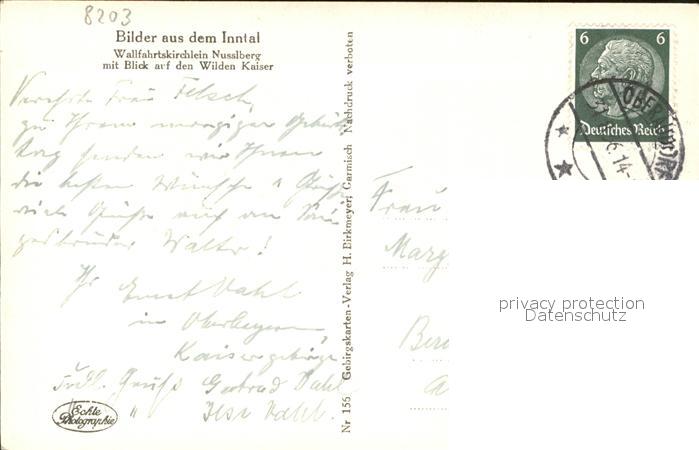 8203
Bilder aus dem Inntal
Wallfahrtskirchlein Nusslberg
mit Blick auf den Wilden Kaiser
Verehrte Frau Fetsch,
zu Ihrem morgigen Geburts
tag senden wir Ihnen
die besten Wünsche &
viele Grüße auch an
Walter!
Ihr Ernst Vahl
in Oberbayern,
Kaisergebirge
Frdl. Grüße Gertrud Vahl
" Ilse Vahl.
Echte
Photographie
Nr 156 Gebirgskarten-Verlag H. Eirkmeyer, Garmisch Nachdruck verboten
6 6
Deutsches Reich
OBER
6.14
Frau
Marg
Ber
privacy protection
Datenschutz